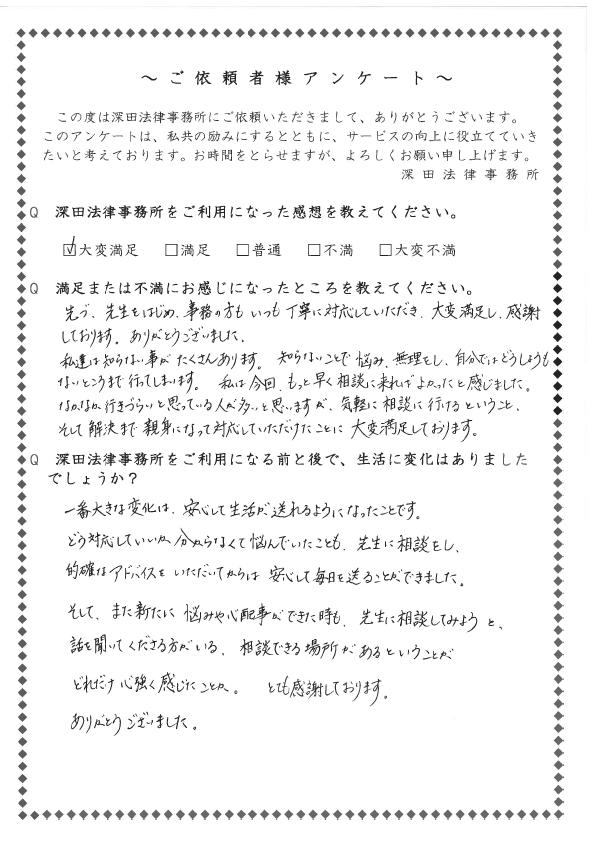 ～ご依頼者様アンケート～
この度は深田法律事務所にご依頼いただきまして、ありがとうございます。
このアンケートは、私共の励みにするとともに、サービスの向上に役立てていき
たいと考えております。お時間をとらせますが、よろしくお願い申し上げます。
深田法律事務所
Q 深田法律事務所をご利用になった感想を教えてください。
☑大変満足 □満足 □普通 □不満 □大変不満
Q 満足または不満にお感じになったところを教えてください。
先づ、先生をはじめ、事務の方もいつも丁寧に対応していただき、大変満足し、感謝
しております。ありがとうございました。
私達は知らない事がたくさんあります。知らないことで悩み、無理をし、自分ではどうしようも
ないところまで行ってしまいます。私は今回、もっと早く相談に来ればよかったと感じました。
なかなか行きづらいと思っている人が多いと思いますが、気軽に相談に行けるということ、
そして解決まで親身になって対応していただけたことに大変満足しております。
Q 深田法律事務所をご利用になる前と後で、生活に変化はありました
でしょうか？
一番大きな変化は、安心して生活が送れるようになったことです。
どう対応していいか分からなくて悩んでいたことも、先生に相談をし、
的確なアドバイスをいただいてからは安心して毎日を送ることができました。
そして、また新たに悩みや心配事ができた時も、先生に相談してみようと、
話を聞いてくださる方がいる、相談できる場所があるということが
どれだけ心強く感じたことか。とても感謝しております。
ありがとうございました。